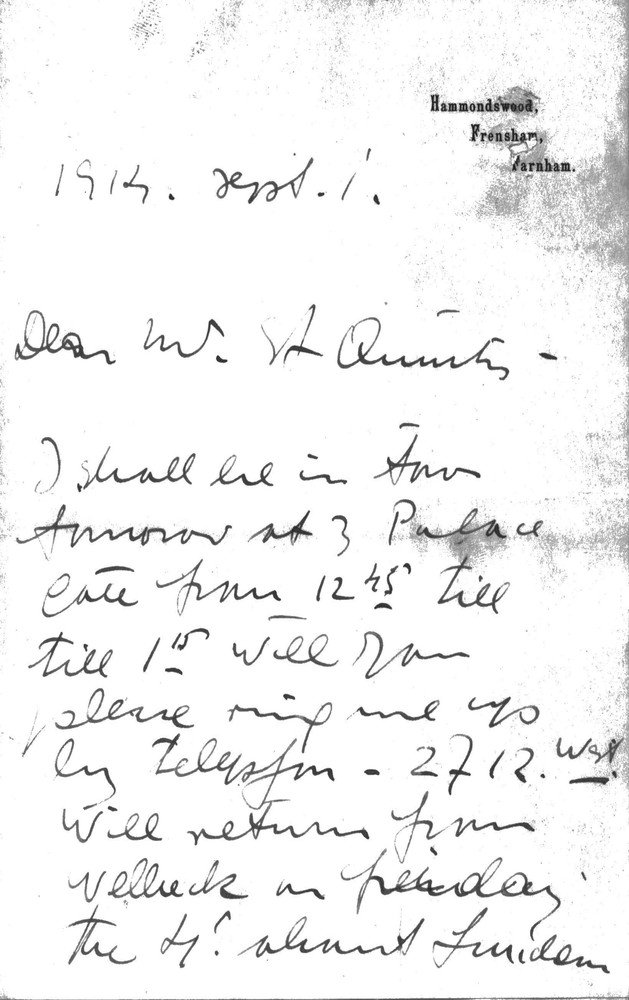 Hammondswood,
Frensham,
Farnham.
1914. Sept. 1.
Dear Mr. St Quintin -
I shall be in Town
tomorow at 3 Palace
Gate from 12 45 till
till 1 15 Will you
please ring me up
by telepfon - 2712. West.
Will return from
Velbeck on freiday
the 4! about